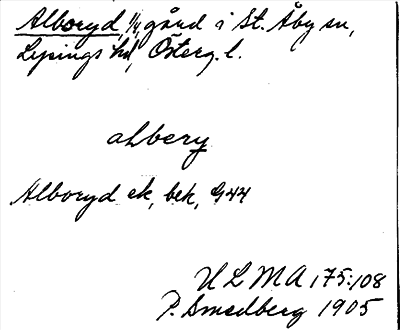 Alboryd, 1/4 gård i St. Åby sn,
Lysings hd, Österg. l.
alberg
Alboryd ek, bek, G44
ULMA 175:108
P. Smedberg 1905